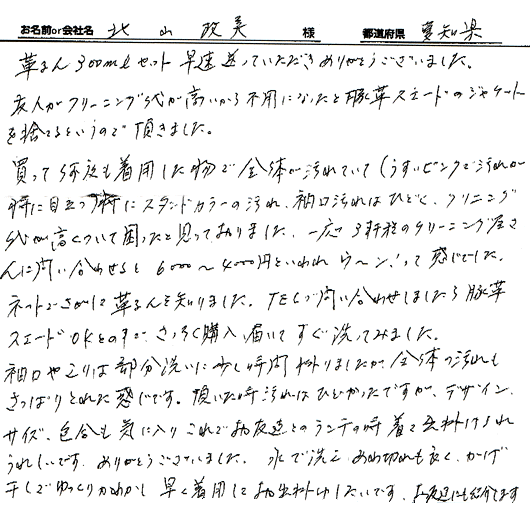 お名前or会社名 北山 改美 様 都道府県 愛知県
革るん300mlセット早速送っていただきありがとうございました。
友人がクリーニング代が高いから不用になったと豚革スエードのジャケット
を捨てるというので頂きました。
買って何度も着用した物で全体が汚れていて(うすいピンクで汚れが
特に目立つ 特にスタンドカラーの汚れ、袖口汚れはひどく、クリニング
代が高くついて困ったと思っておりました。一応3軒程のクリーニング屋さ
んに問い合わせると6000〜4000円といわれウ〜ン!って感じでした。
ネットでさがして革るんを知りました。TELで問い合わせしましたら豚革
スエードOKとの事で、さっそく購入、届いてすぐ洗ってみました。
袖口やえりは部分洗いに少し時間かかりましたが全体の汚れも
さっぱりとれた感じです。頂いた時汚れはひどかったですが、デザイン、
サイズ、色合も気に入りこれでお友達とのランチの時着て出掛けられ
うれしいです。ありがとうございました。水で洗え、あわ切れも良く、かげ
干しでゆっくりかわかし早く着用してお出掛けしたいです。お友達にも紹介します